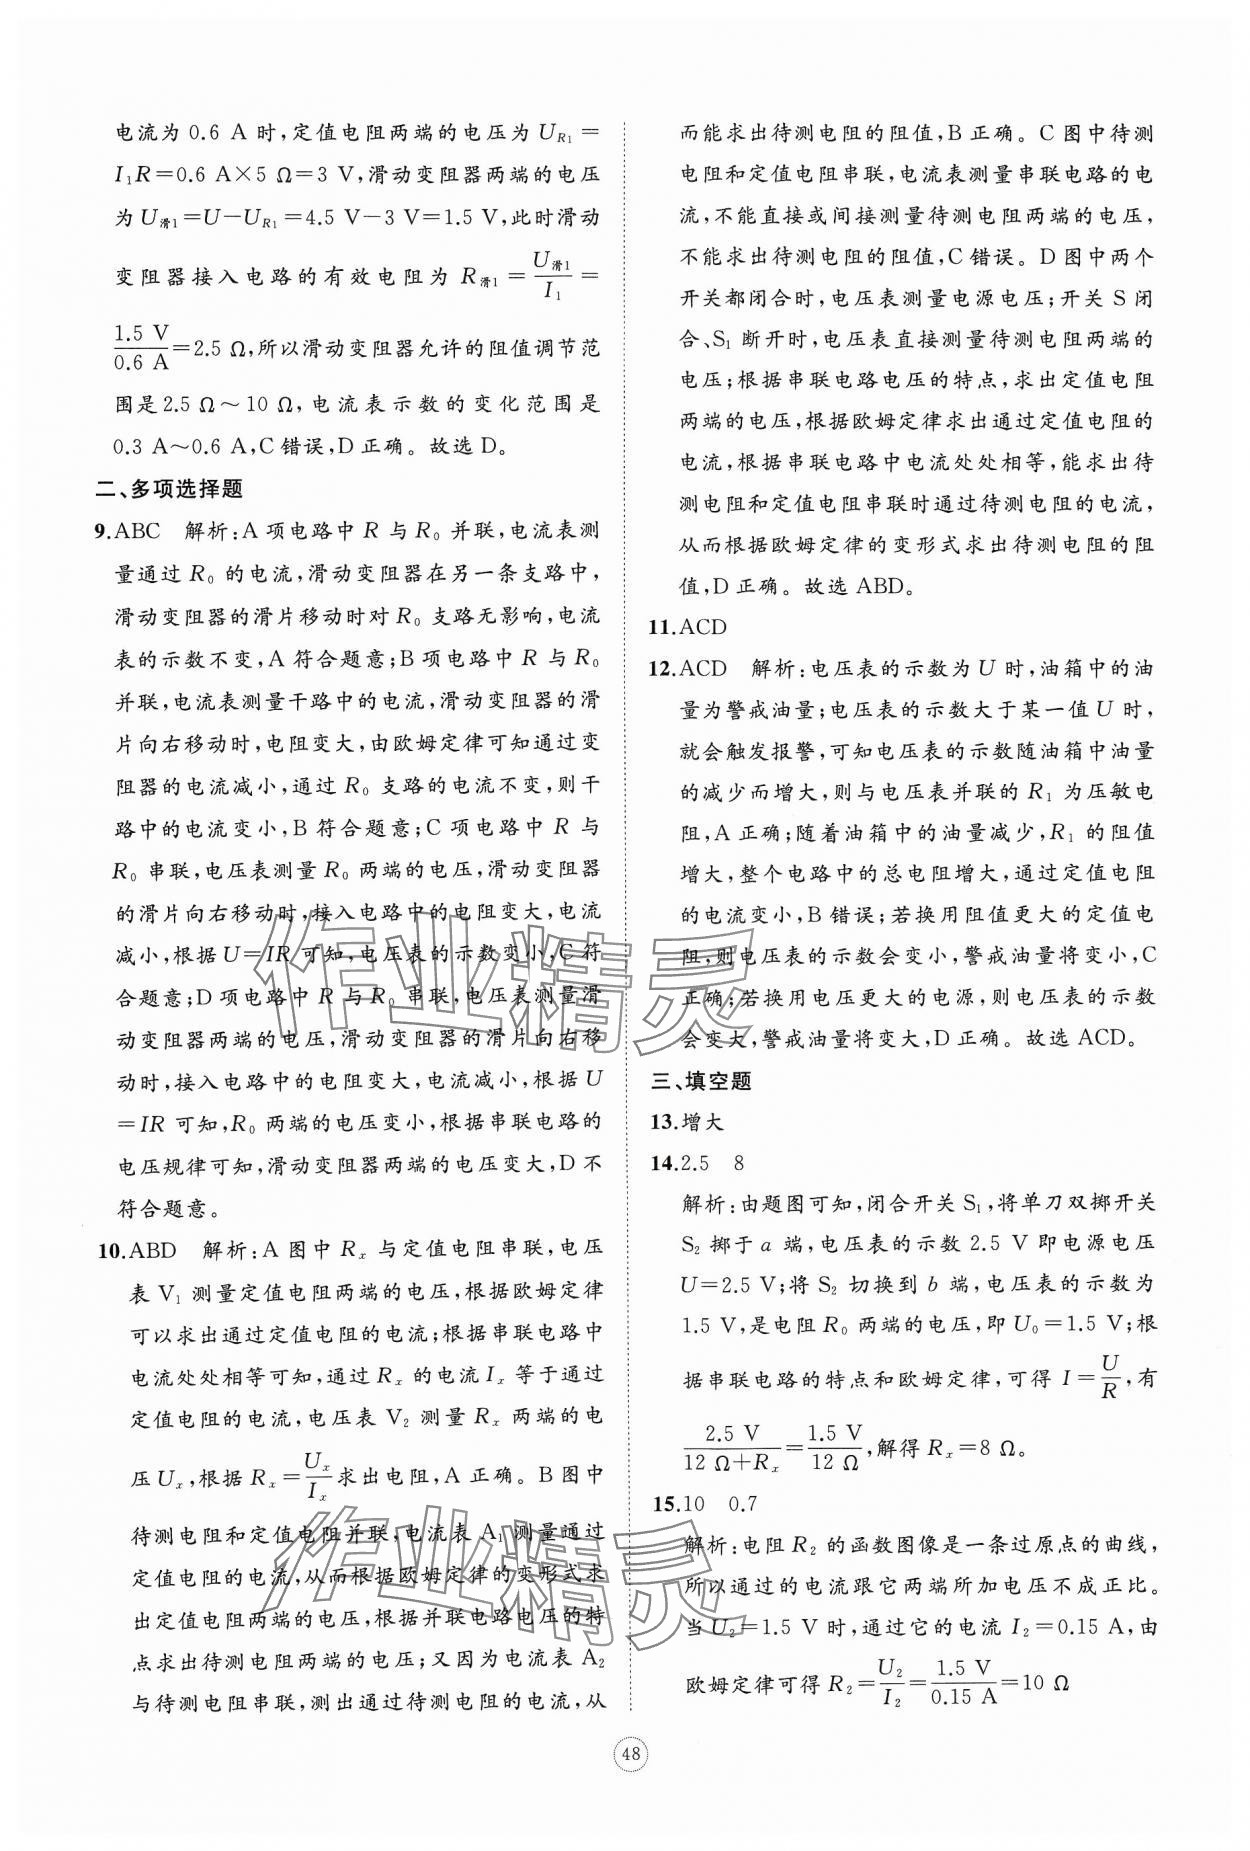 电流为 0.6 A 时,定值电阻两端的电压为 U_{R1}=
I₁R=0.6 A×5 Ω=3 V,滑动变阻器两端的电压
为 U_{滑1}=U-U_{R1}=4.5 V-3 V=1.5 V,此时滑动
变阻器接入电路的有效电阻为 R_{滑1}=U_{滑1}/I₁=
1.5 V/0.6 A=2.5 Ω,所以滑动变阻器允许的阻值调节范
围是 2.5 Ω～10 Ω,电流表示数的变化范围是
0.3 A～0.6 A,C 错误,D 正确。故选 D。
二、多项选择题
9.ABC 解析:A 项电路中 R 与 R₀ 并联,电流表测
量通过 R₀ 的电流,滑动变阻器在另一条支路中,
滑动变阻器的滑片移动时对 R₀ 支路无影响,电流
表的示数不变,A 符合题意;B 项电路中 R 与 R₀
并联,电流表测量干路中的电流,滑动变阻器的滑
片向右移动时,电阻变大,由欧姆定律可知通过变
阻器的电流减小,通过 R₀ 支路的电流不变,则干
路中的电流变小,B 符合题意;C 项电路中 R 与
R₀ 串联,电压表测量 R₀ 两端的电压,滑动变阻器
的滑片向右移动时,接入电路中的电阻变大,电流
减小,根据 U=IR 可知,电压表的示数变小,C 符
合题意;D 项电路中 R 与 R₀ 串联,电压表测量滑
动变阻器两端的电压,滑动变阻器的滑片向右移
动时,接入电路中的电阻变大,电流减小,根据 U
=IR 可知,R₀ 两端的电压变小,根据串联电路的
电压规律可知,滑动变阻器两端的电压变大,D 不
符合题意。
10.ABD 解析:A 图中 Rₓ 与定值电阻串联,电压
表 V₁ 测量定值电阻两端的电压,根据欧姆定律
可以求出通过定值电阻的电流;根据串联电路中
电流处处相等可知,通过 Rₓ 的电流 Iₓ 等于通过
定值电阻的电流,电压表 V₂ 测量 Rₓ 两端的电
压 Uₓ,根据 Rₓ=Uₓ/Iₓ求出电阻,A 正确。B 图中
待测电阻和定值电阻并联,电流表 A₁ 测量通过
定值电阻的电流,从而根据欧姆定律的变形式求
出定值电阻两端的电压,根据并联电路电压的特
点求出待测电阻两端的电压;又因为电流表 A₂
与待测电阻串联,测出通过待测电阻的电流,从
而能求出待测电阻的阻值,B 正确。C 图中待测
电阻和定值电阻串联,电流表测量串联电路的电
流,不能直接或间接测量待测电阻两端的电压,
不能求出待测电阻的阻值,C 错误。D 图中两个
开关都闭合时,电压表测量电源电压;开关 S 闭
合、S₁ 断开时,电压表直接测量待测电阻两端的
电压;根据串联电路电压的特点,求出定值电阻
两端的电压,根据欧姆定律求出通过定值电阻的
电流,根据串联电路中电流处处相等,能求出待
测电阻和定值电阻串联时通过待测电阻的电流,
从而根据欧姆定律的变形式求出待测电阻的阻
值,D 正确。故选 ABD。
11.ACD
12.ACD 解析:电压表的示数为 U 时,油箱中的油
量为警戒油量;电压表的示数大于某一值 U 时,
就会触发报警,可知电压表的示数随油箱中油量
的减少而增大,则与电压表并联的 R₁ 为压敏电
阻,A 正确;随着油箱中的油量减少,R₁ 的阻值
增大,整个电路中的总电阻增大,通过定值电阻
的电流变小,B 错误;若换用阻值更大的定值电
阻,则电压表的示数会变小,警戒油量将变小,C
正确;若换用电压更大的电源,则电压表的示数
会变大,警戒油量将变大,D 正确。故选 ACD。
三、填空题
13.增大
14.2.5 8
解析:由题图可知,闭合开关 S₁,将单刀双掷开关
S₂ 掷于 a 端,电压表的示数 2.5 V 即电源电压
U=2.5 V;将 S₂ 切换到 b 端,电压表的示数为
1.5 V,是电阻 R₀ 两端的电压,即 U₀=1.5 V;根
据串联电路的特点和欧姆定律,可得 I=U/R,有
2.5 V/(12 Ω+Rₓ)=1.5 V/12 Ω,解得 Rₓ=8 Ω。
15.10 0.7
解析:电阻 R₂ 的函数图像是一条过原点的曲线,
所以通过的电流跟它两端所加电压不成正比。
当 U₂=1.5 V 时,通过它的电流 I₂=0.15 A,由
欧姆定律可得 R₂=U₂/I₂=1.5 V/0.15 A=10 Ω
48
作业精灵
作业精灵